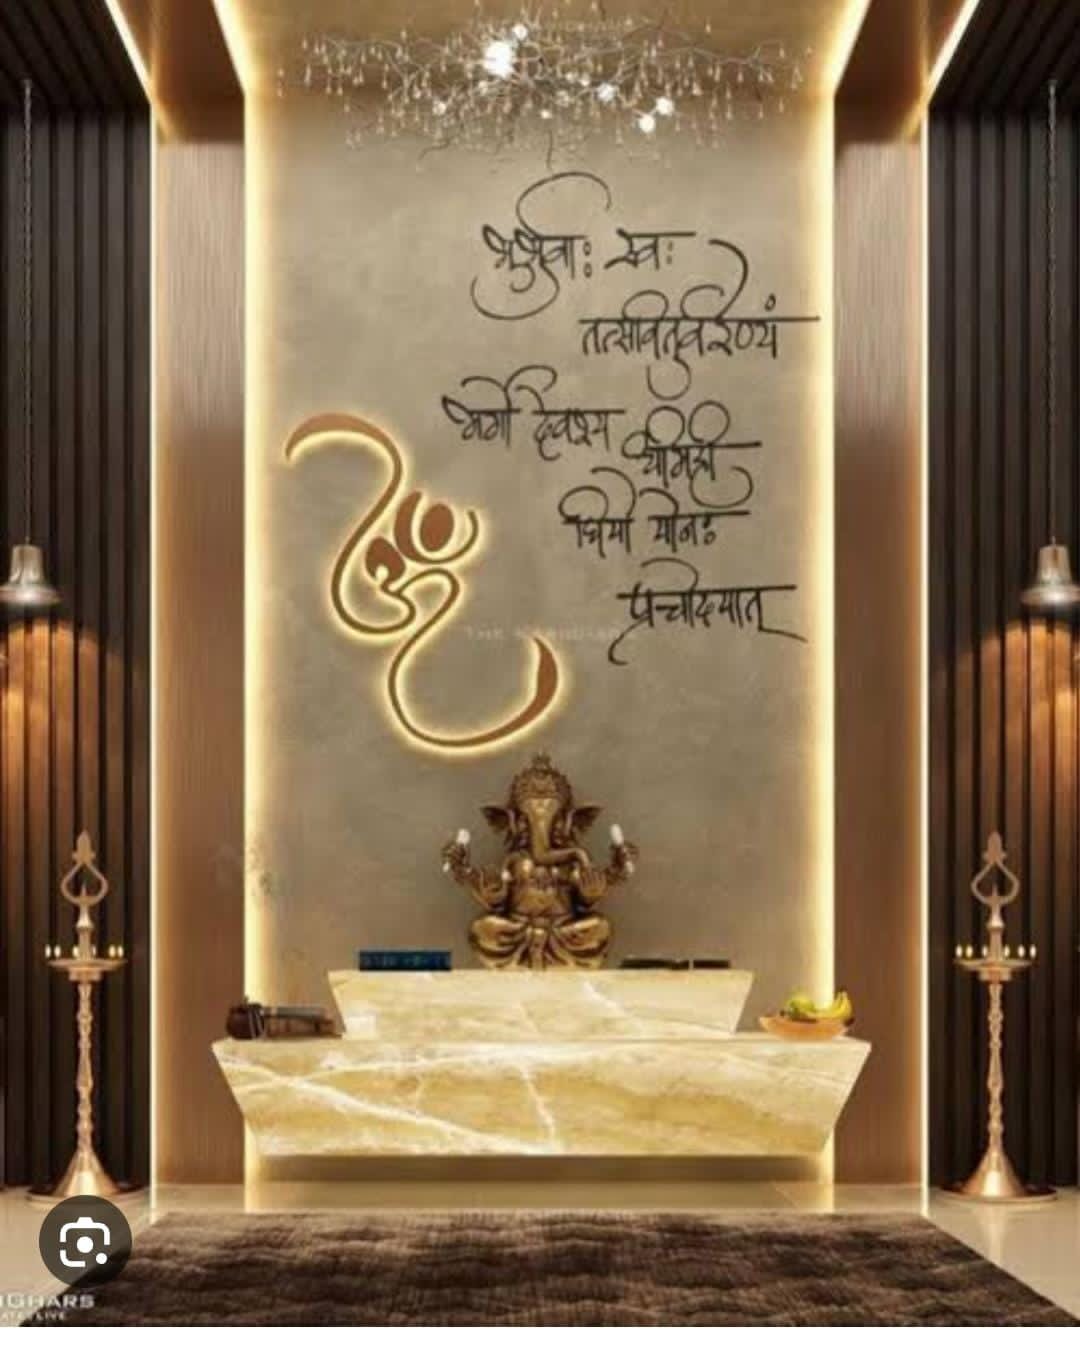 भूर्भुवाः स्वः
तत्सवितुर्वरेण्यं
भर्गो देवस्य
धीमही
धियो योनः
प्रचोदयात्